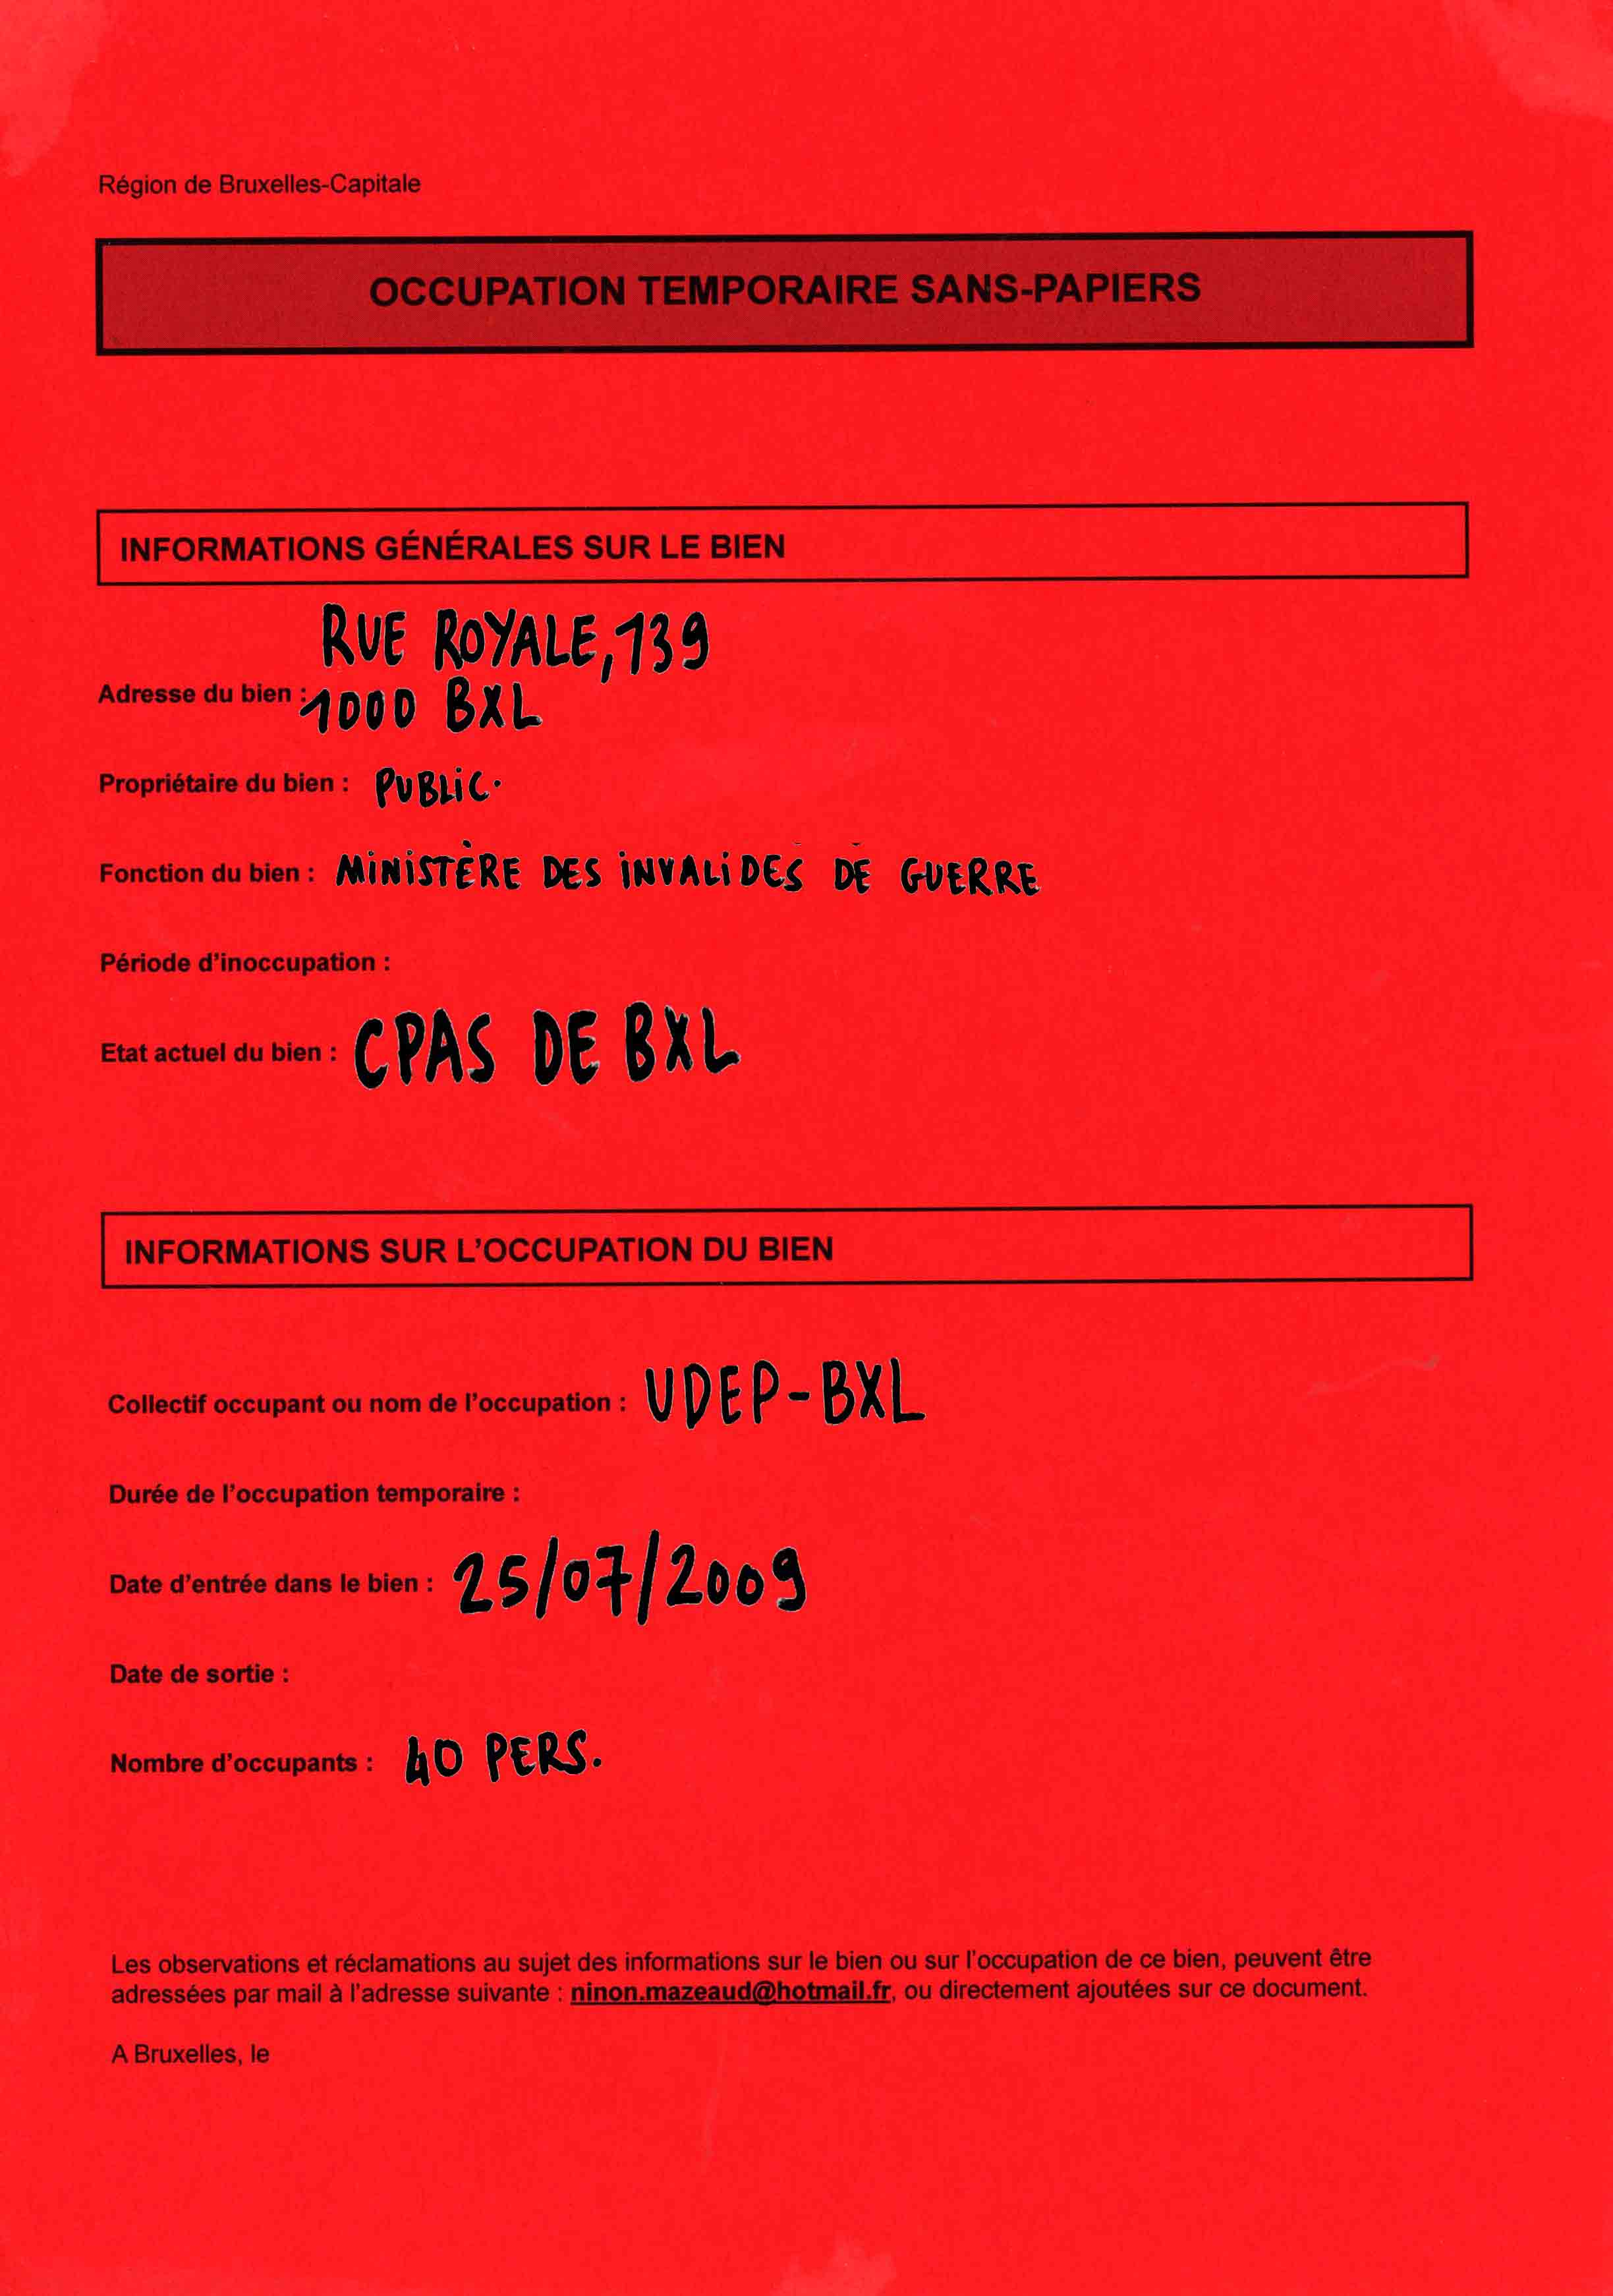 Région de Bruxelles-Capitale
OCCUPATION TEMPORAIRE SANS-PAPIERS
INFORMATIONS GÉNÉRALES SUR LE BIEN
RUE ROYALE, 139
Adresse du bien : 1000 BXL
Propriétaire du bien : PUBLiC.
Fonction du bien : MiNiSTÈRE DES iNVALiDES DE GUERRE
Période d'inoccupation :
Etat actuel du bien : CPAS DE BXL
INFORMATIONS SUR L'OCCUPATION DU BIEN
Collectif occupant ou nom de l'occupation : UDEP-BXL
Durée de l'occupation temporaire :
Date d'entrée dans le bien : 25/07/2009
Date de sortie :
Nombre d'occupants : 40 PERS.
Les observations et réclamations au sujet des informations sur le bien ou sur l'occupation de ce bien, peuvent être
adressées par mail à l'adresse suivante : ninon.mazeaud@hotmail.fr, ou directement ajoutées sur ce document.
A Bruxelles, le